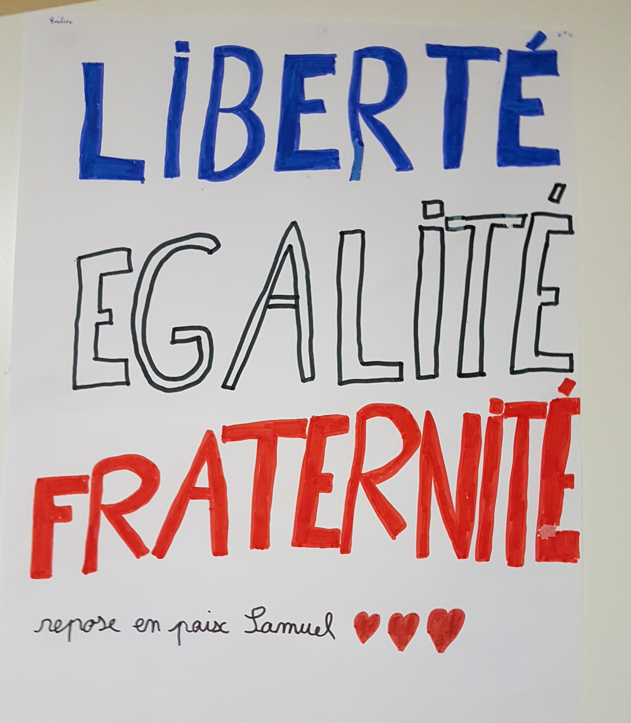 LiBERTÉ
EGALiTÉ
FRATERNiTÉ
repose en paix Samuel